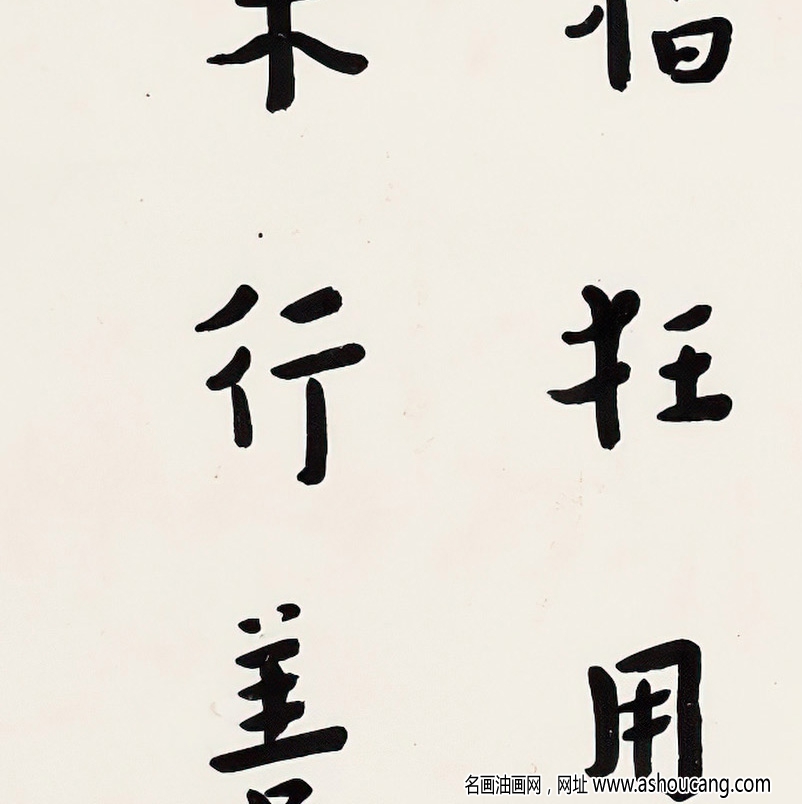 狂用
行善
名画油画网，网址 www.ashoucang.com